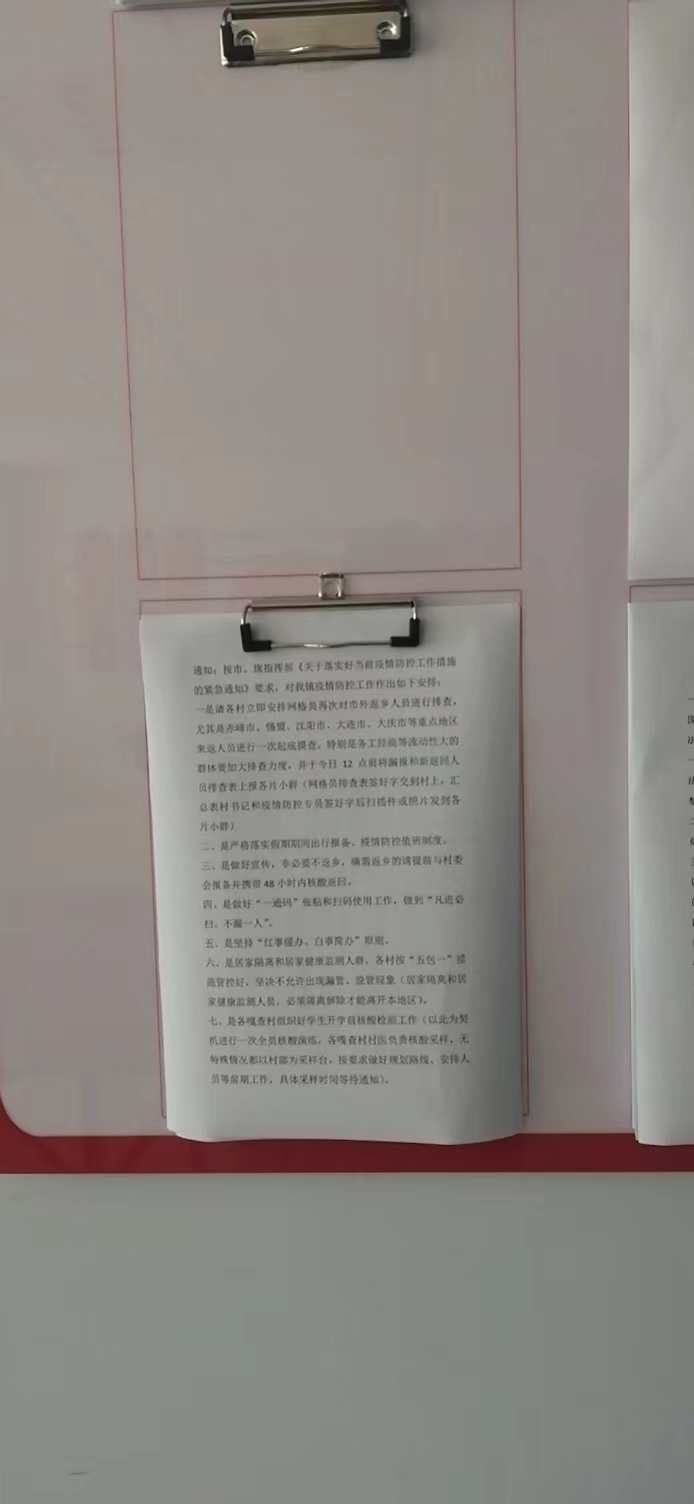 通知：按市、旗指挥部《关于落实好当前疫情防控工作措施
的紧急通知》要求，对我镇疫情防控工作作出如下安排：
一是请各村立即安排网格员再次对市外返乡人员进行排查，
尤其是赤峰市、锡盟、沈阳市、大连市、大庆市等重点地区
来返人员进行一次起底摸查，特别是务工经商等流动性大的
群体要加大排查力度，并于今日 12 点前将漏报和新返回人
员排查表上报各片小群（网格员排查表签好字交到村上，汇
总表村书记和疫情防控专员签好字后扫描件或照片发到各
片小群）
二、是严格落实假期期间出行报备、疫情防控值班制度。
三、是做好宣传，非必要不返乡，确需返乡的请提前与村委
会报备并携带 48 小时内核酸返回。
四、是做好“一通码”张贴和扫码使用工作，做到“凡进必
扫、不漏一人”。
五、是坚持“红事缓办、白事简办”原则。
六、是居家隔离和居家健康监测人群，各村按“五包一”措
施管控好，坚决不允许出现漏管、脱管现象（居家隔离和居
家健康监测人员，必须隔离解除才能离开本地区）。
七、是各嘎查村组织好学生开学前核酸检测工作（以此为契
机进行一次全员核酸演练，各嘎查村村医负责核酸采样，无
特殊情况都以村部为采样台，按要求做好规划路线、安排人
员等前期工作，具体采样时间等待通知）。